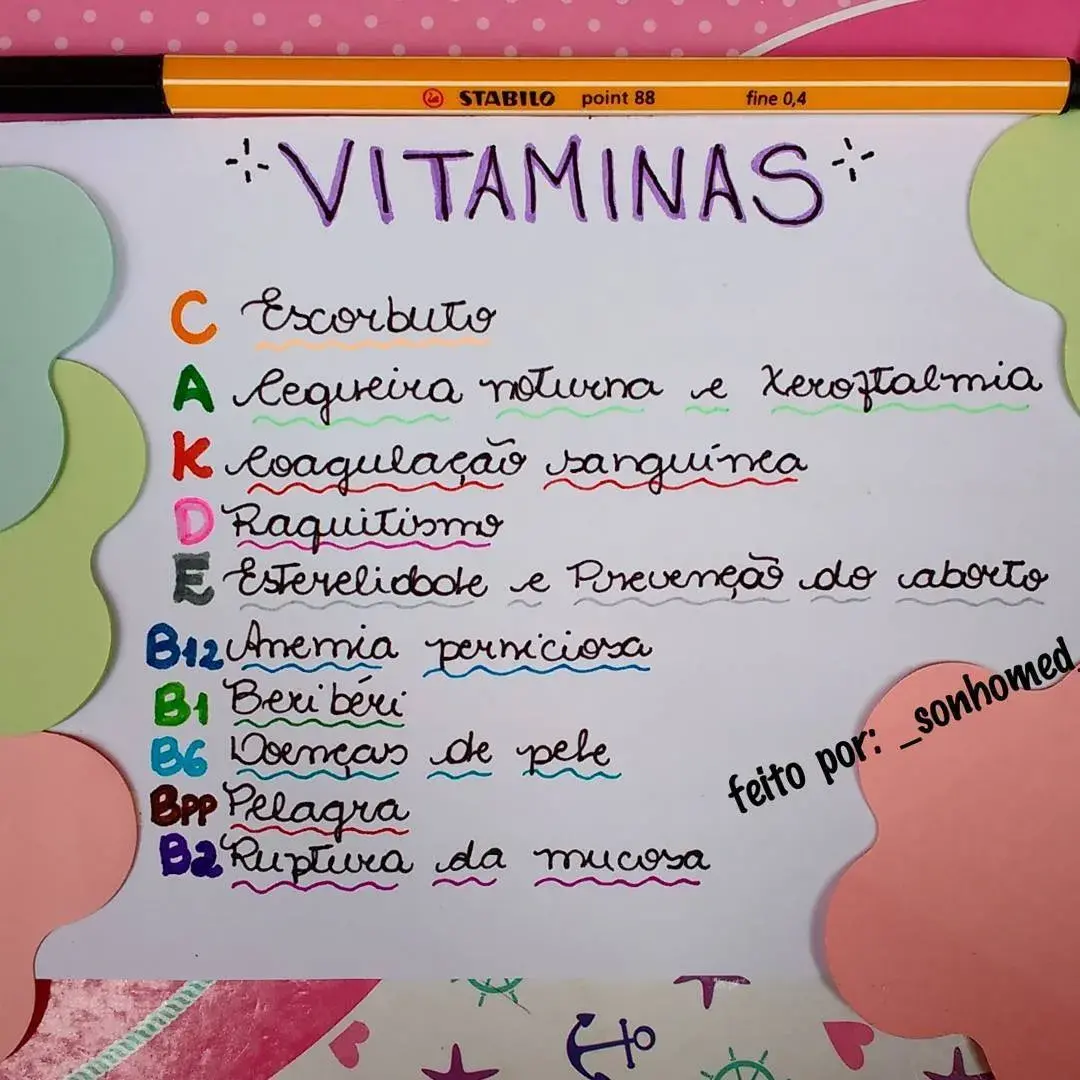 STABILO point 88 fine 0,4
VITAMINAS
C Escorbuto
A Cegueira noturna e Xeroftalmia
K Coagulação sanguínea
D Raquitismo
E Esterelidade e Prevenção do aborto
B12 Anemia perniciosa
B1 Beribéri
B6 Doenças de pele
BPP Pelagra
B2 Ruptura da mucosa
feito por: _sonhomed_